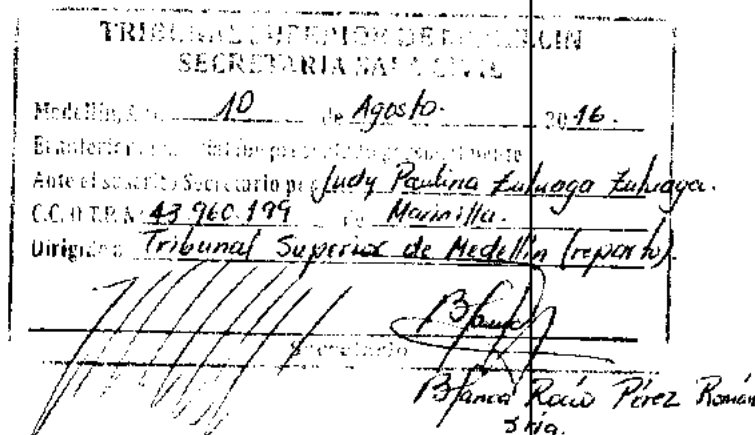 TRIBUNAL SUPERIOR DE MEDELLIN
SECRETARIA SALA CIVIL
Medellin, 10 de Agosto. 2016.
El anterior fue presentado personalmente
Ante el suscrito Secretario por Judy Paulina Zuluaga Zuluaga.
C.C. O T.P. N. 43.960.199 de Marinilla.
Dirigido a Tribunal Superior de Medellín (reparto).
Secretario
Blanca Rocío Pérez Román
Sria.